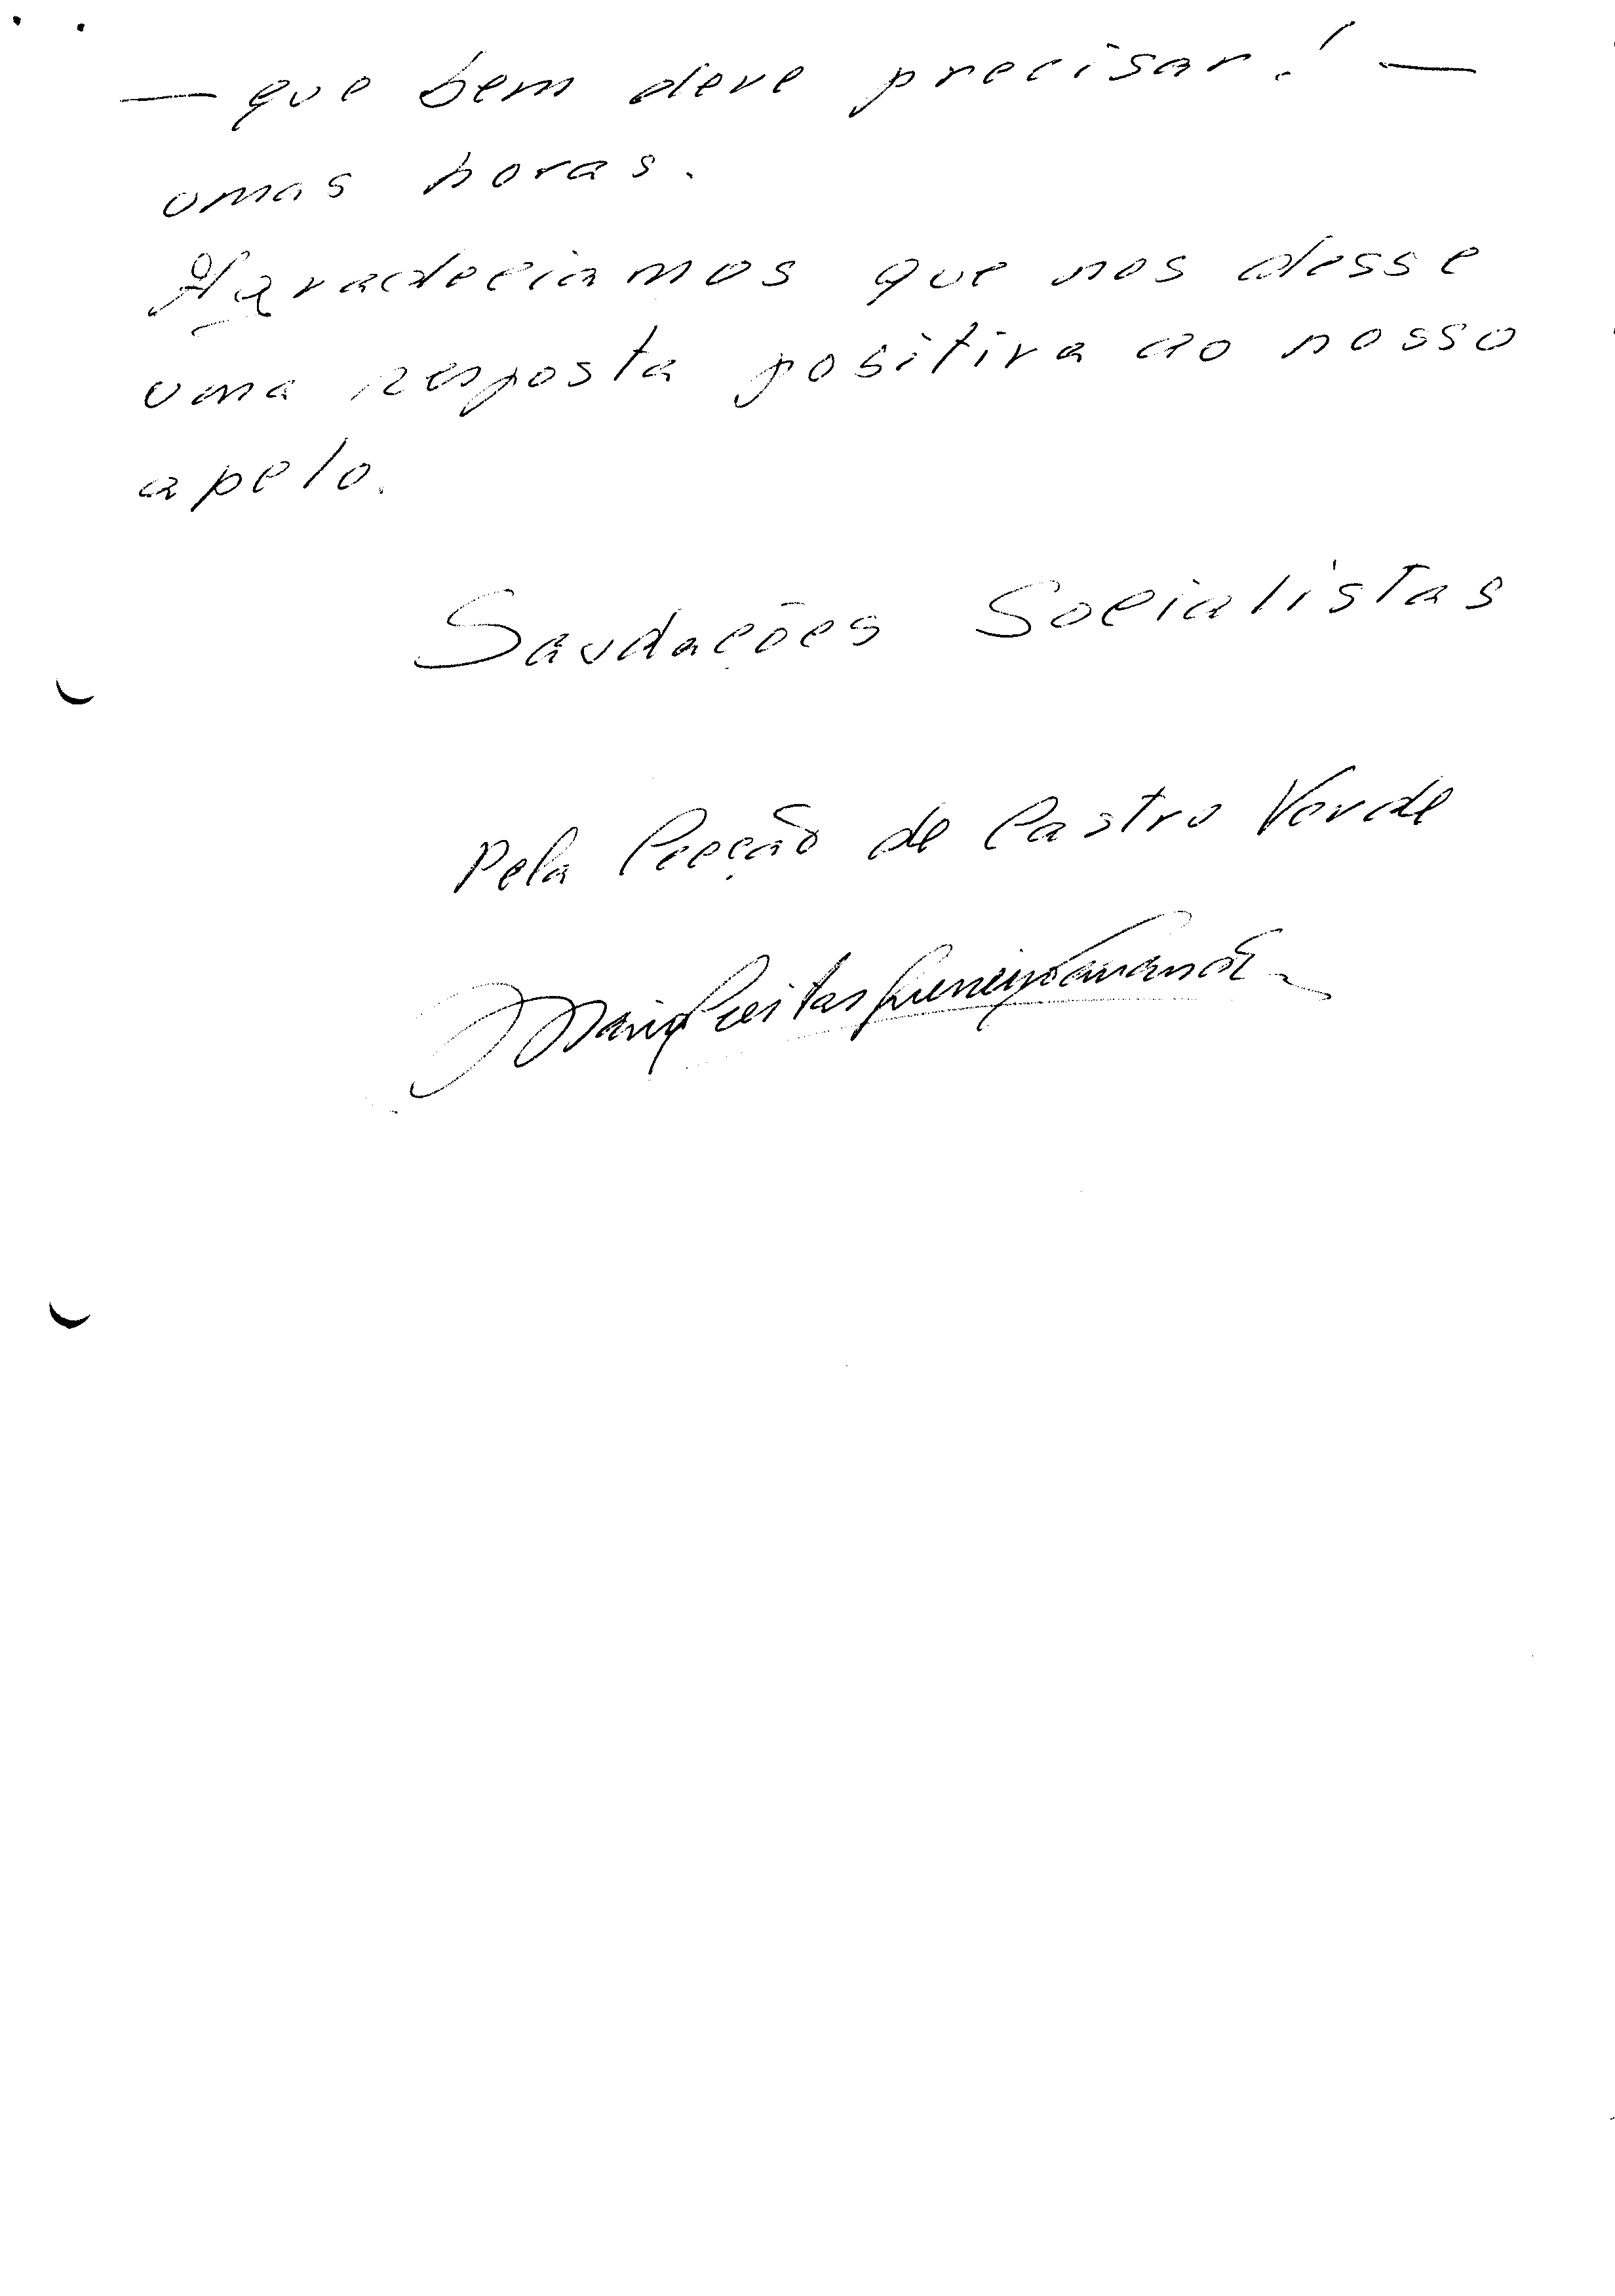 — que bem deve precisar! —
umas horas.
Agradeciamos que nos desse
uma resposta positiva ao nosso
apelo.
Saudações Socialistas
Pela Secção de Castro Verde